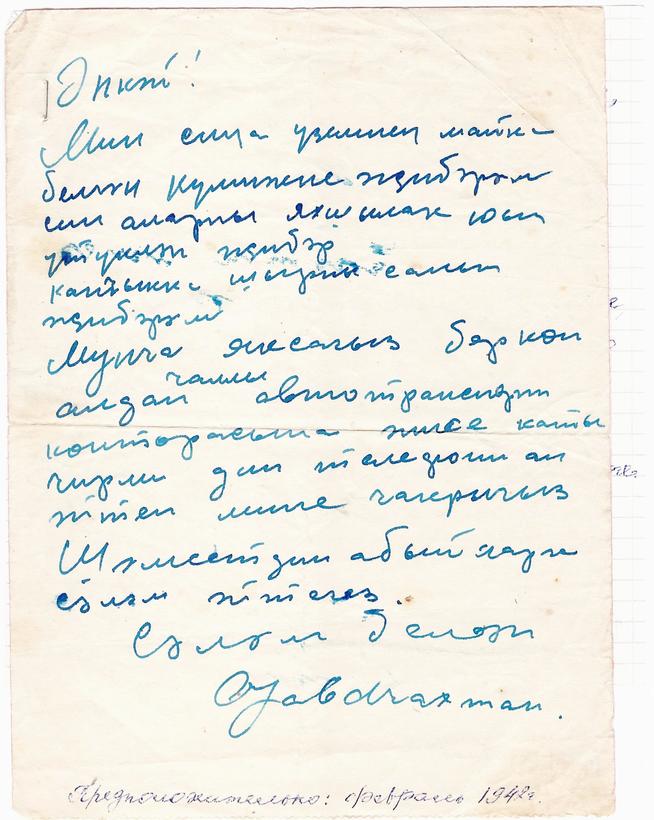 Әнкәй!
Мин сиңа үземнең майка
белән күлмәкне җибәрәм
син аларны яхшылак юып
үтүкләп җибәр
кайтышка ыштан салып
җибәрәм
Мунча яксагыз бер көн
алдан чамы автотранспорт
конторасына әнисе каты
чирли дип телефоннан
әйтеп мине чакричыз
Шәмсетдин абыйларга
сәләм әйтегез.
Сәлам белән
Gabdraxman.
Предположительно: февраль 1942г.